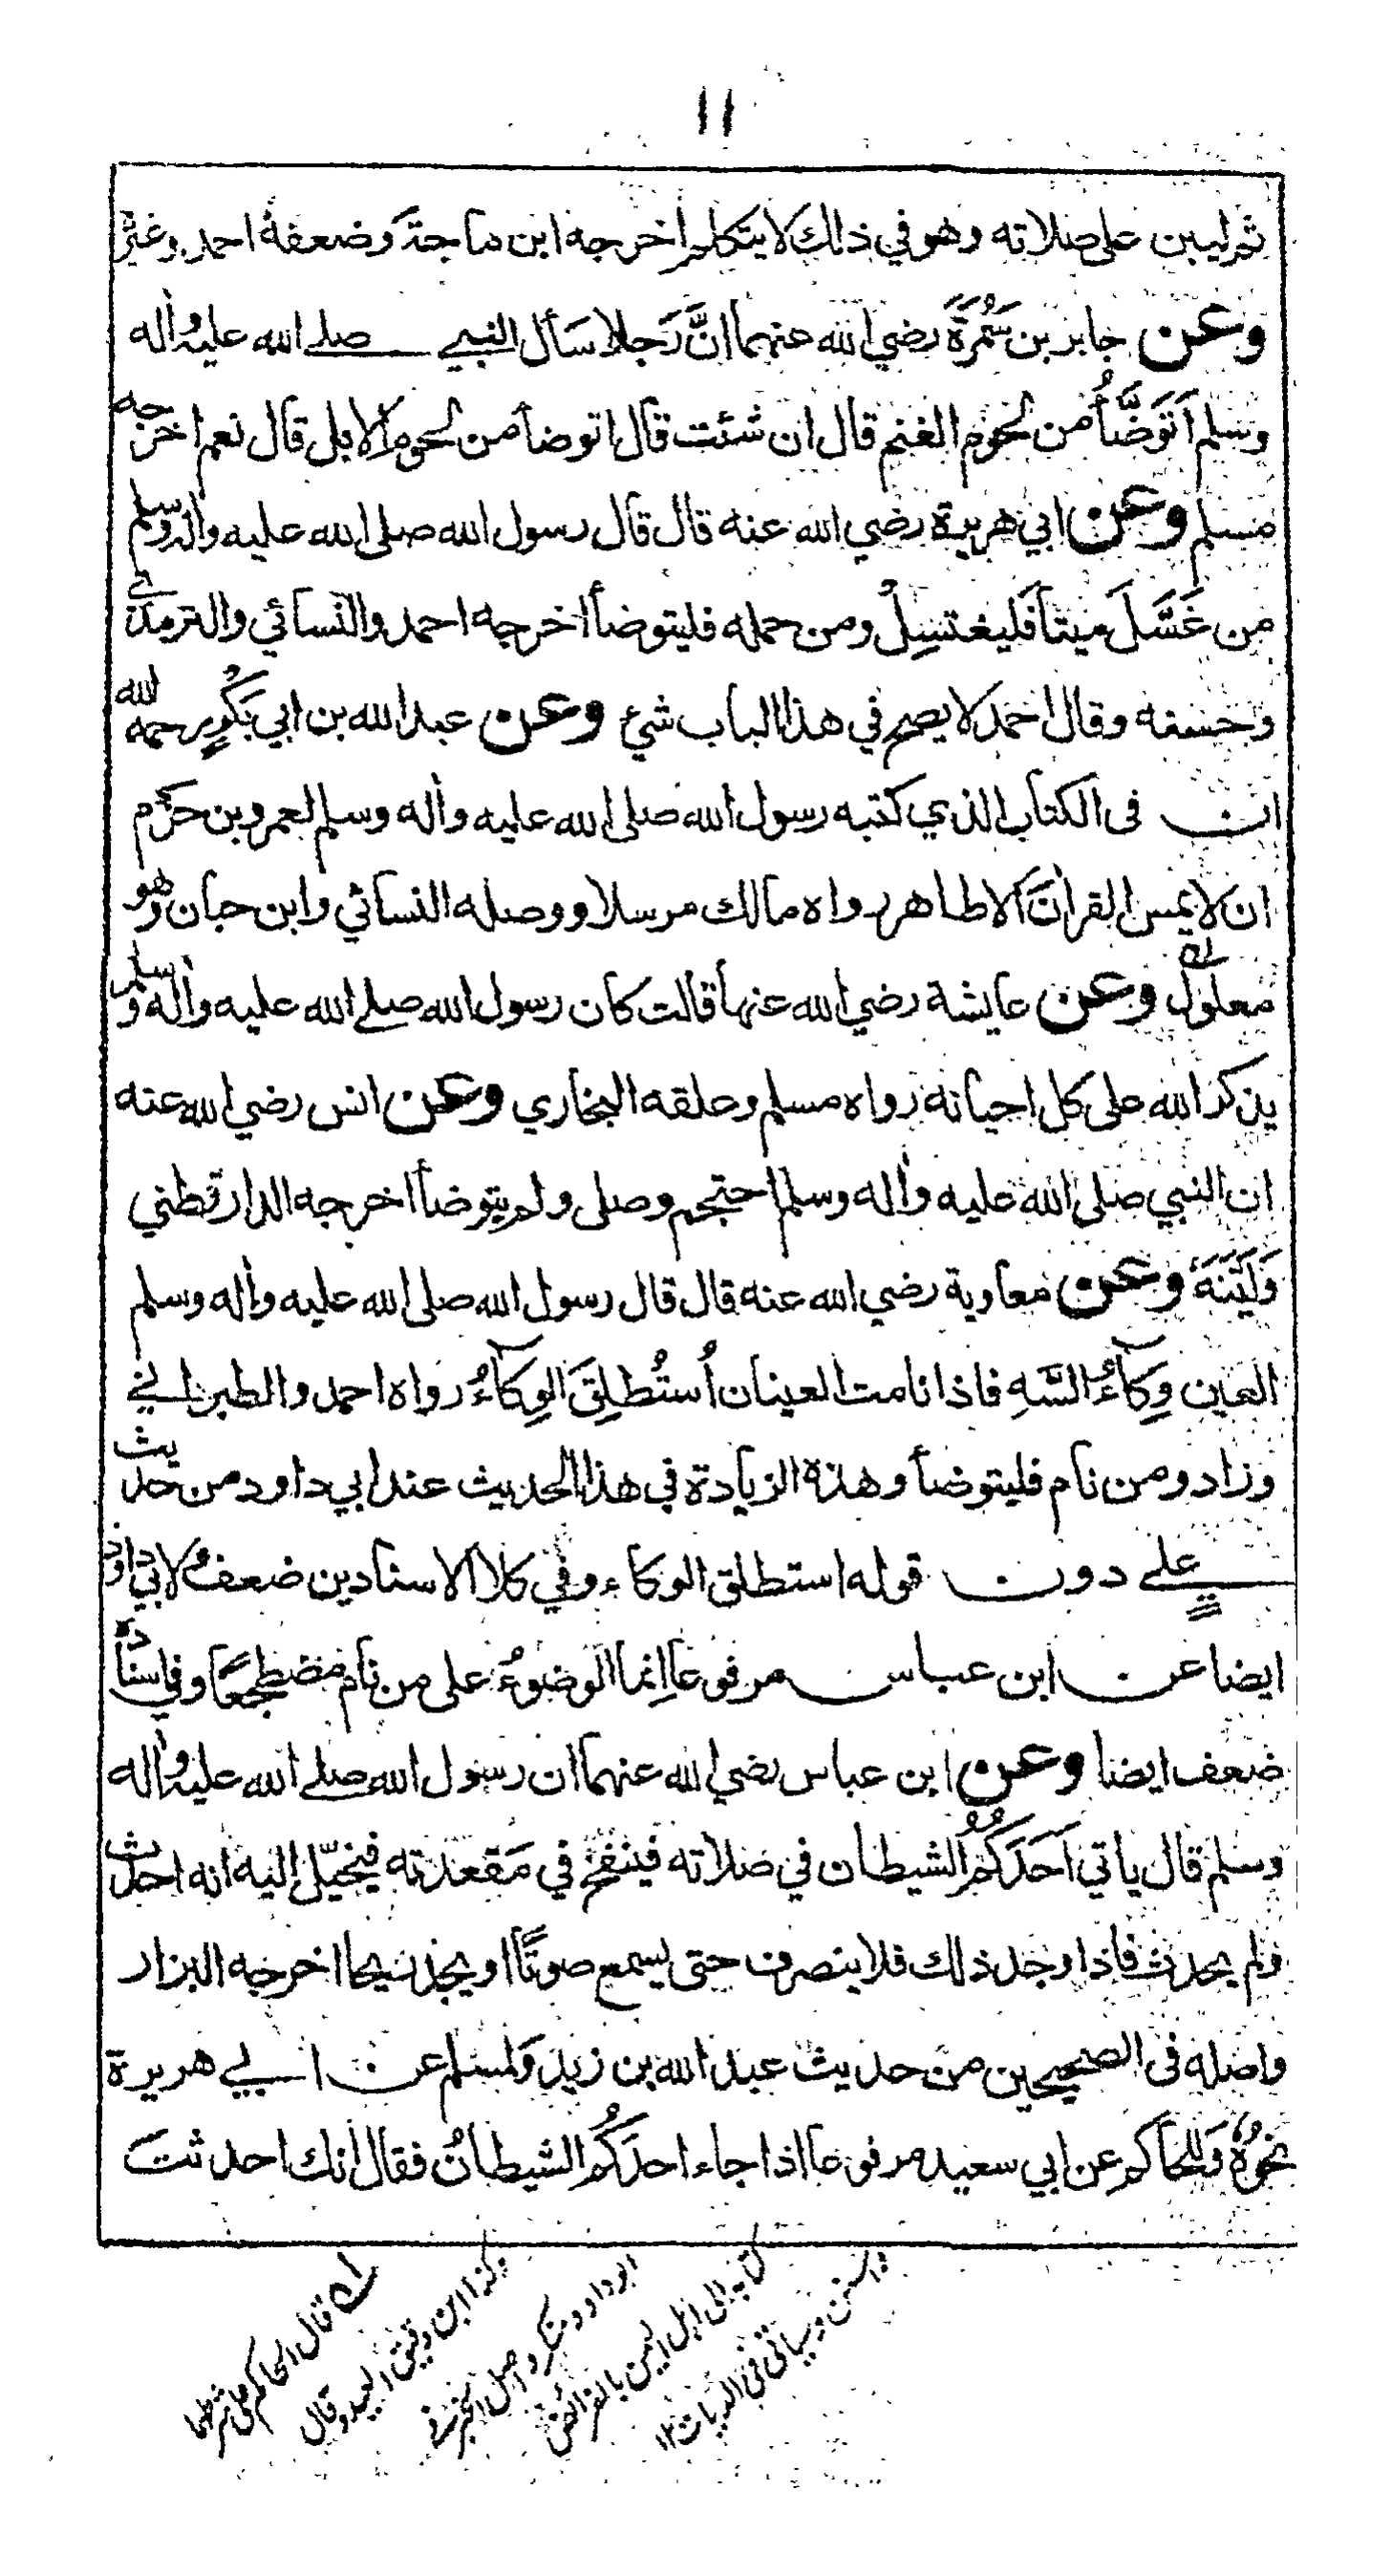 ١١
ثم ليبن على صلاته وهو في ذلك لا يتكلم اخرجه ابن ماجة وضعفه احمد وغيره
وعن جابر بن سَمُرَةَ رضي الله عنهما انَّ رَجلا سَأل النبي صلى الله عليه واٰله
وسلم اَتَوَضَّأُ من لحوم الغنم قال ان شئت قال اتوضأ من لحوم الابل قال نعم اخرجه
مسلم وعن ابي هريرة رضي الله عنه قال قال رسول الله صلى الله عليه واٰله وسلم
من غَسَّلَ ميتاً فَليغتسِلْ ومن حمله فليتوضأ اخرجه احمد والنَّسائي والترمذي
وحسنه وقال احمد لا يصح في هذا الباب شيء وعن عبد الله بن ابي بَكْرٍ رحمه الله
ان في الكتاب الذي كتبه رسول الله صلى الله عليه واٰله وسلم لعمرو بن حَزْم
ان لا يمس القراٰنَ الا طاهر رواه مالك مرسلا ووصله النسائي وابن حبان وهو
معلول وعن عايشة رضي الله عنها قالت كان رسول الله صلى الله عليه واٰله وسلم
يذكر الله على كل احيانه رواه مسلم وعلقه البخاري وعن انس رضي الله عنه
ان النبي صلى الله عليه واٰله وسلم احتجم وصلى ولم يتوضأ اخرجه الدارقطني
وَلَيَّنَهُ وعن معاوية رضي الله عنه قال قال رسول الله صلى الله عليه واٰله وسلم
العين وِكآءُ السَّهِ فاذا نامت العينان اُستُطلِقَ الوِكآءُ رواه احمد والطبراني
وزاد ومن نام فليتوضأ وهذه الزيادة في هذا الحديث عند ابي داود من حديث
علي دون قوله استطلق الوكاء وفي كلا الاسنادين ضعفٌ ولابي داود
ايضا عن ابن عباس مرفوعا اِنما الوضوءُ على من نام مضطجعًا وفي اسناده
ضعف ايضا وعن ابن عباس رضي الله عنهما ان رسول الله صلى الله عليه واٰله
وسلم قال ياتي اَحَدَكُمُ الشيطان في صلاته فينفخ في مَقعدته فيُخيّل اليه انه احدث
ولم يحدث فاذا وجد ذلك فلا ينصرف حتى يسمع صوتًا او يجد ريحا اخرجه البزار
واصله في الصحيحين من حديث عبد الله بن زيد ولمسلم عن ابي هريرة
نحوُهٗ وَللحاكم عن ابي سعيد مرفوعا اذا جاء احدَكُمُ الشيطانُ فقال انك احدثت
قال الحاكم على شرطهما
كذا ابن دقيق العيد وقال
ابو داود منكر واصل الخبر في
كتابه الى اهل اليمن بالفرائض
والسنن وسياتي في الديات ١٢